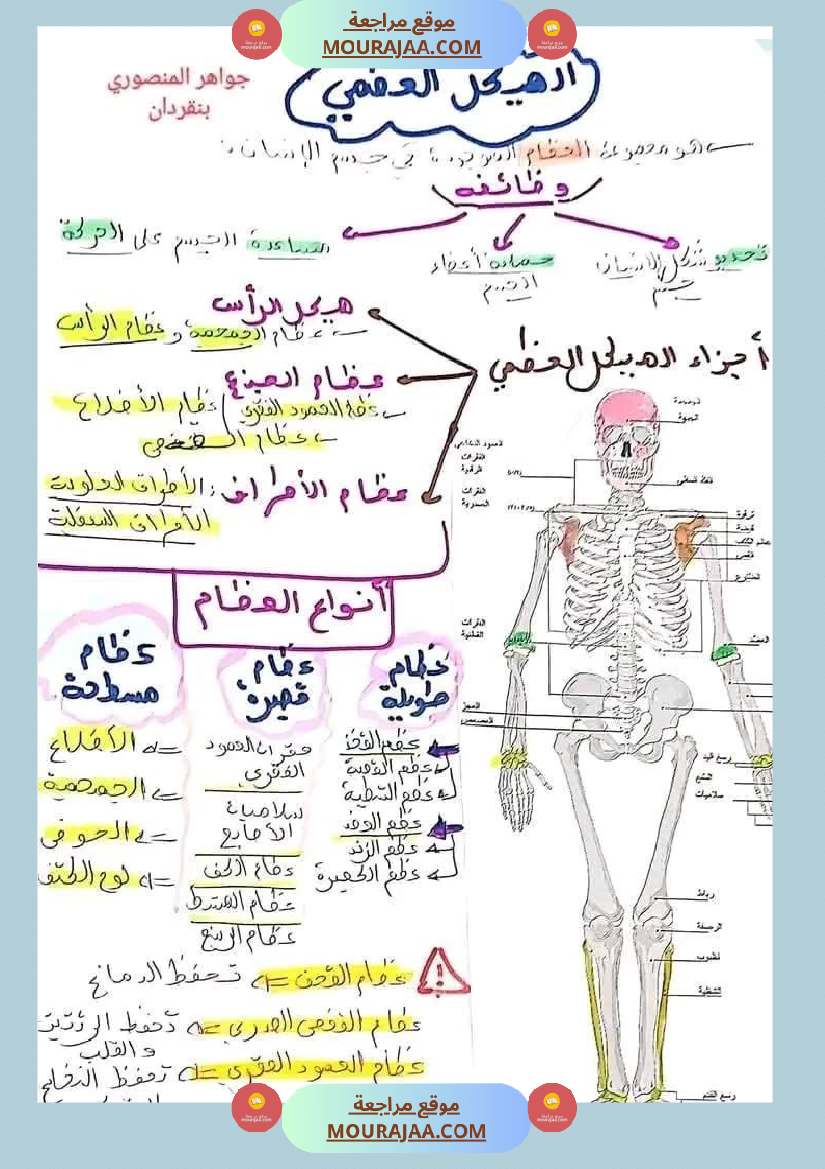 موقع مراجعة
MOURAJAA.COM
جواهر المنصوري
بنقردان
الهيكل العضمي
هو مجموعة العظام الموجودة في جسم الإنسان
وظائفه
تحديد شكل الانسان
جسم
حماية أعضاء
الجسم
مساعدة الجسم على الحركة
أجزاء الهيكل العضمي
هيكل الرأس
عظام الجمجمة و عظام الرأس
عظام الجذع
عظام العمود الفقري / عظام الأضلاع
عظام
عظام الأطراف : الأطراف العلوية
الأطراف السفلية
أنواع العظام
عظام
طويلة
عظم الفخذ
عظم القصبة
عظم الشظية
عظم العضد
عظم الزند
عظم الكعبرة
عظام
قصيرة
فقرات العمود
الفقري
سلاميات
الأصابع
عظام الكف
عظام المشط
عظام الرسغ
عظام
مسطحة
الأضلاع
الجمجمة
الحوض
لوح الكتف
عظام القحف => تحفظ الدماغ
عظام القفص الصدري => تحفظ الرئتين
والقلب
عظام العمود الفقري => تحفظ النخاع
الفقرات
الفقرات
الصدرية
الفقرات
القطنية
العجز
ترقوة
الضلوع
العضد
رسغ اليد
المشط
سلاميات
الرضفة
الشظية
رسغ القدم
موقع مراجعة
MOURAJAA.COM